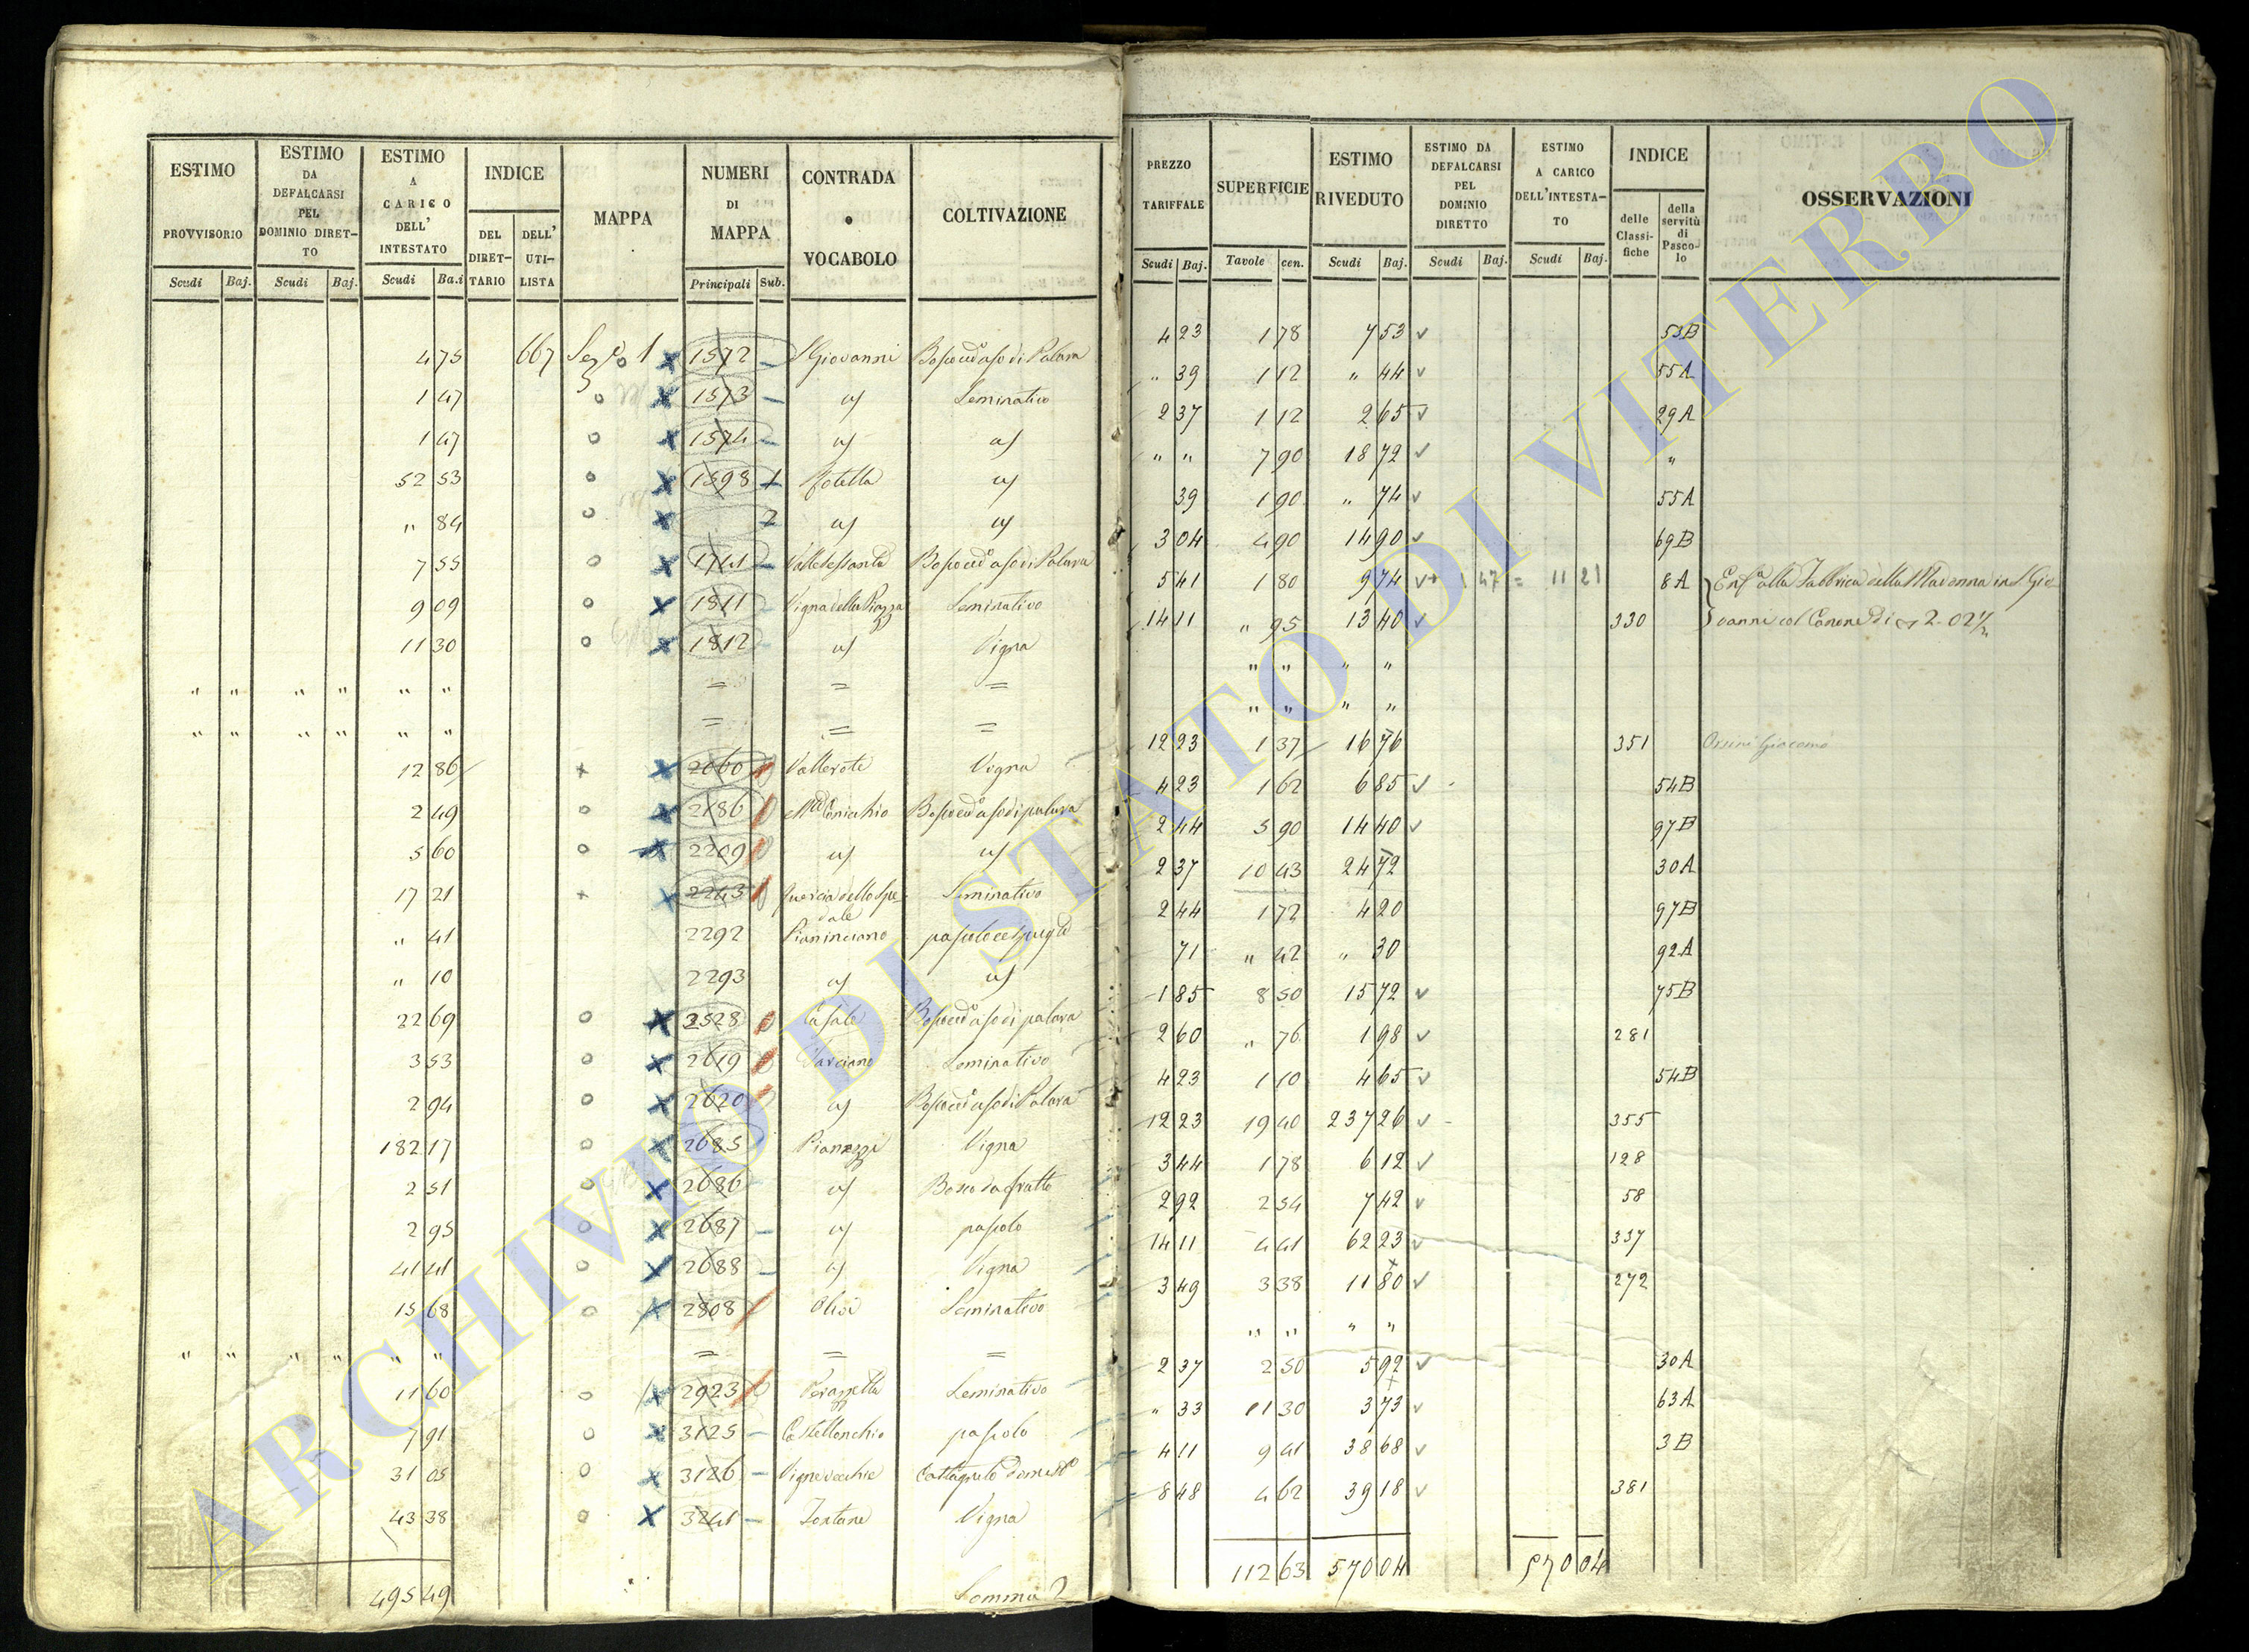 ESTIMO PROVVISORIO
ESTIMO DA DEFALCARSI PEL DOMINIO DIRET-TO
ESTIMO A CARICO DELL' INTESTATO
INDICE
DEL DIRET-TARIO
DELL' UTI-LISTA
MAPPA
NUMERI DI MAPPA
CONTRADA o VOCABOLO
COLTIVAZIONE
Scudi Baj. Scudi Baj. Scudi Ba.i Principali Sub.
4 75 667 Sez.e 1 1572 S Giovanni
1 47 1573 Seminativo
1 47 1574
52 53 1598 1
" 84 2
7 55 1741
9 09 1811 Vigna della Piazza Seminativo
11 30 1812 Vigna
" " " " " " = = =
" " " " " " = = =
12 86 2060 Vallerote Vigna
2 49 2186
5 60 2209
17 21 2243 Quercia dello Spe dale Seminativo
" 41 2292
" 10 2293
22 69 2528 Casale
3 53 2619 Seminativo
2 94 2620
182 17 2685 Pianezzi Vigna
2 51 2686 Bosco da frutto
2 95 2687 pascolo
41 41 2688 Vigna
15 68 2808 Seminativo
" " " " " " = = =
11 60 2923 Seminativo
7 91 3125 Castellonchio pascolo
31 05 3126 Vigne vecchie
43 38 3241 Fontane Vigna
495 49 Somma 2
PREZZO TARIFFALE
SUPERFICIE
ESTIMO RIVEDUTO
ESTIMO DA DEFALCARSI PEL DOMINIO DIRETTO
ESTIMO A CARICO DELL'INTESTA-TO
INDICE
delle Classi-fiche
della servitù di Pasco-lo
OSSERVAZIONI
Scudi Baj. Tavole cen. Scudi Baj. Scudi Baj. Scudi Baj.
4 23 1 78 7 53 53B
" 39 1 12 " 44 55A
2 37 1 12 2 65 29A
" " 7 90 18 72 "
39 1 90 " 74 55A
3 04 4 90 14 90 69B
5 41 1 80 9 74 1 47 = 11 21 8A Enf.a alla Fabbrica della Madonna in S. Gio
14 11 " 95 13 40 330 vanni col Canone di 2.02½
" " " "
" " " "
12 23 1 37 16 76 351 Orsini Giacomo
4 23 1 62 6 85 54B
2 44 5 90 14 40 97B
2 37 10 43 24 72 30A
2 44 1 72 4 20 97B
71 " 42 " 30 92A
1 85 8 50 15 72 75B
2 60 " 76 1 98 281
4 23 1 10 4 65 54B
12 23 19 40 237 26 355
3 44 1 78 6 12 128
2 92 2 54 7 42 58
14 11 4 41 62 23 337
3 49 3 38 11 80 272
" " " "
2 37 2 50 5 92 30A
" 33 11 30 3 73 63A
4 11 9 41 38 68 3B
8 48 4 62 39 18 381
112 63 570 04 570 04
ARCHIVIO DI STATO DI VITERBO